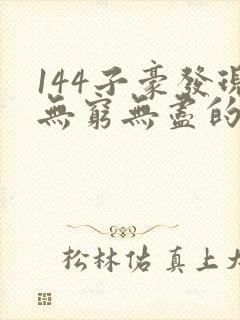 144子豪發現
無窮無盡的
松林佑真上大